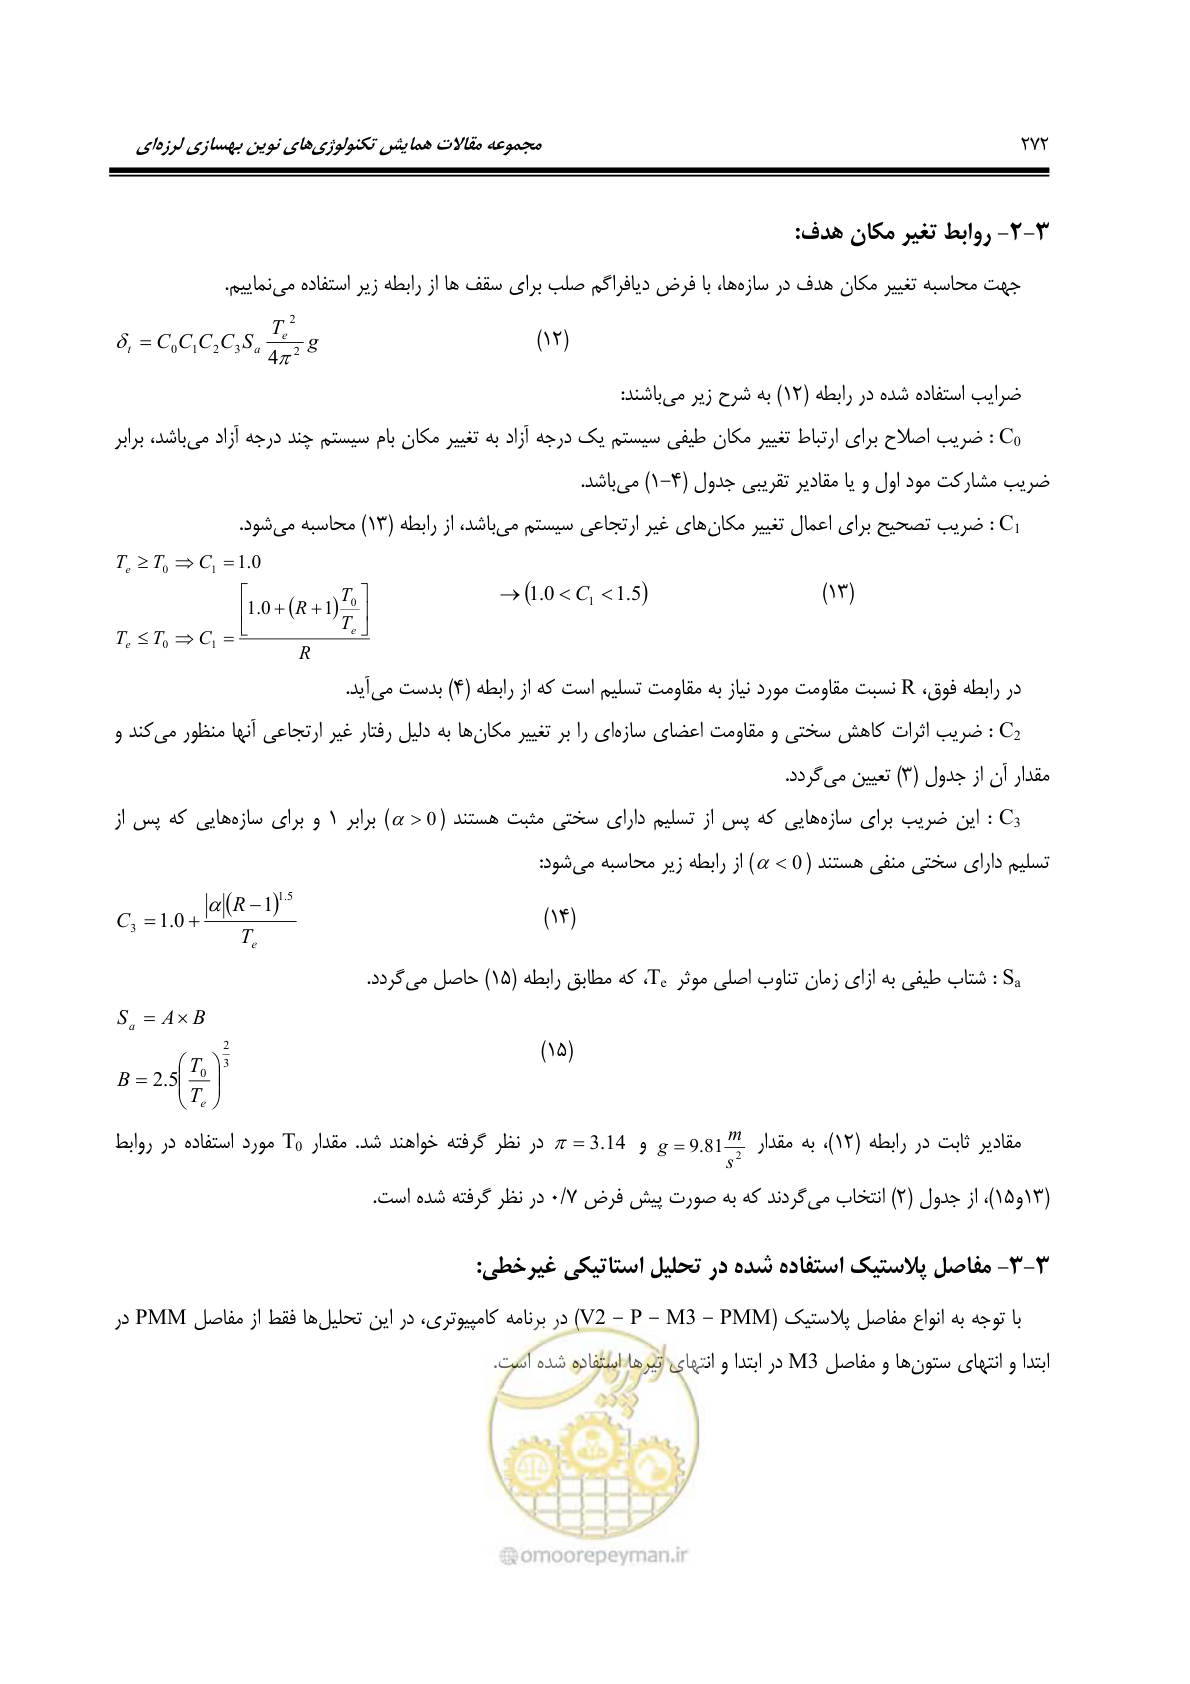 ۲۷۲ مجموعه مقالات همایش تکنولوژی‌های نوین بهسازی لرزه‌ای
۳-۲- روابط تغیر مکان هدف:
جهت محاسبه تغییر مکان هدف در سازه‌ها، با فرض دیافراگم صلب برای سقف ها از رابطه زیر استفاده می‌نماییم.
δ_t = C_0C_1C_2C_3S_a \frac{T_e^2}{4π^2} g (۱۲)
ضرایب استفاده شده در رابطه (۱۲) به شرح زیر می‌باشند:
C0 : ضریب اصلاح برای ارتباط تغییر مکان طیفی سیستم یک درجه آزاد به تغییر مکان بام سیستم چند درجه آزاد می‌باشد، برابر
ضریب مشارکت مود اول و یا مقادیر تقریبی جدول (۴-۱) می‌باشد.
C1 : ضریب تصحیح برای اعمال تغییر مکان‌های غیر ارتجاعی سیستم می‌باشد، از رابطه (۱۳) محاسبه می‌شود.
T_e ≥ T_0 ⇒ C_1 = 1.0
T_e ≤ T_0 ⇒ C_1 = \frac{[1.0 + (R + 1)\frac{T_0}{T_e}]}{R} → (1.0 < C_1 < 1.5) (۱۳)
در رابطه فوق، R نسبت مقاومت مورد نیاز به مقاومت تسلیم است که از رابطه (۴) بدست می‌آید.
C2 : ضریب اثرات کاهش سختی و مقاومت اعضای سازه‌ای را بر تغییر مکان‌ها به دلیل رفتار غیر ارتجاعی آنها منظور می‌کند و
مقدار آن از جدول (۳) تعیین می‌گردد.
C3 : این ضریب برای سازه‌هایی که پس از تسلیم دارای سختی مثبت هستند (α > 0) برابر ۱ و برای سازه‌هایی که پس از
تسلیم دارای سختی منفی هستند (α < 0) از رابطه زیر محاسبه می‌شود:
C_3 = 1.0 + \frac{|α|(R − 1)^{1.5}}{T_e} (۱۴)
Sa : شتاب طیفی به ازای زمان تناوب اصلی موثر Te، که مطابق رابطه (۱۵) حاصل می‌گردد.
S_a = A × B
B = 2.5(\frac{T_0}{T_e})^{\frac{2}{3}} (۱۵)
مقادیر ثابت در رابطه (۱۲)، به مقدار g = 9.81\frac{m}{s^2} و π = 3.14 در نظر گرفته خواهند شد. مقدار T0 مورد استفاده در روابط
(۱۳و۱۵)، از جدول (۲) انتخاب می‌گردند که به صورت پیش فرض ۰/۷ در نظر گرفته شده است.
۳-۳- مفاصل پلاستیک استفاده شده در تحلیل استاتیکی غیرخطی:
با توجه به انواع مفاصل پلاستیک (V2 – P – M3 – PMM) در برنامه کامپیوتری، در این تحلیل‌ها فقط از مفاصل PMM در
ابتدا و انتهای ستون‌ها و مفاصل M3 در ابتدا و انتهای تیرها استفاده شده است.
امورپیمان
@omoorepeyman.ir